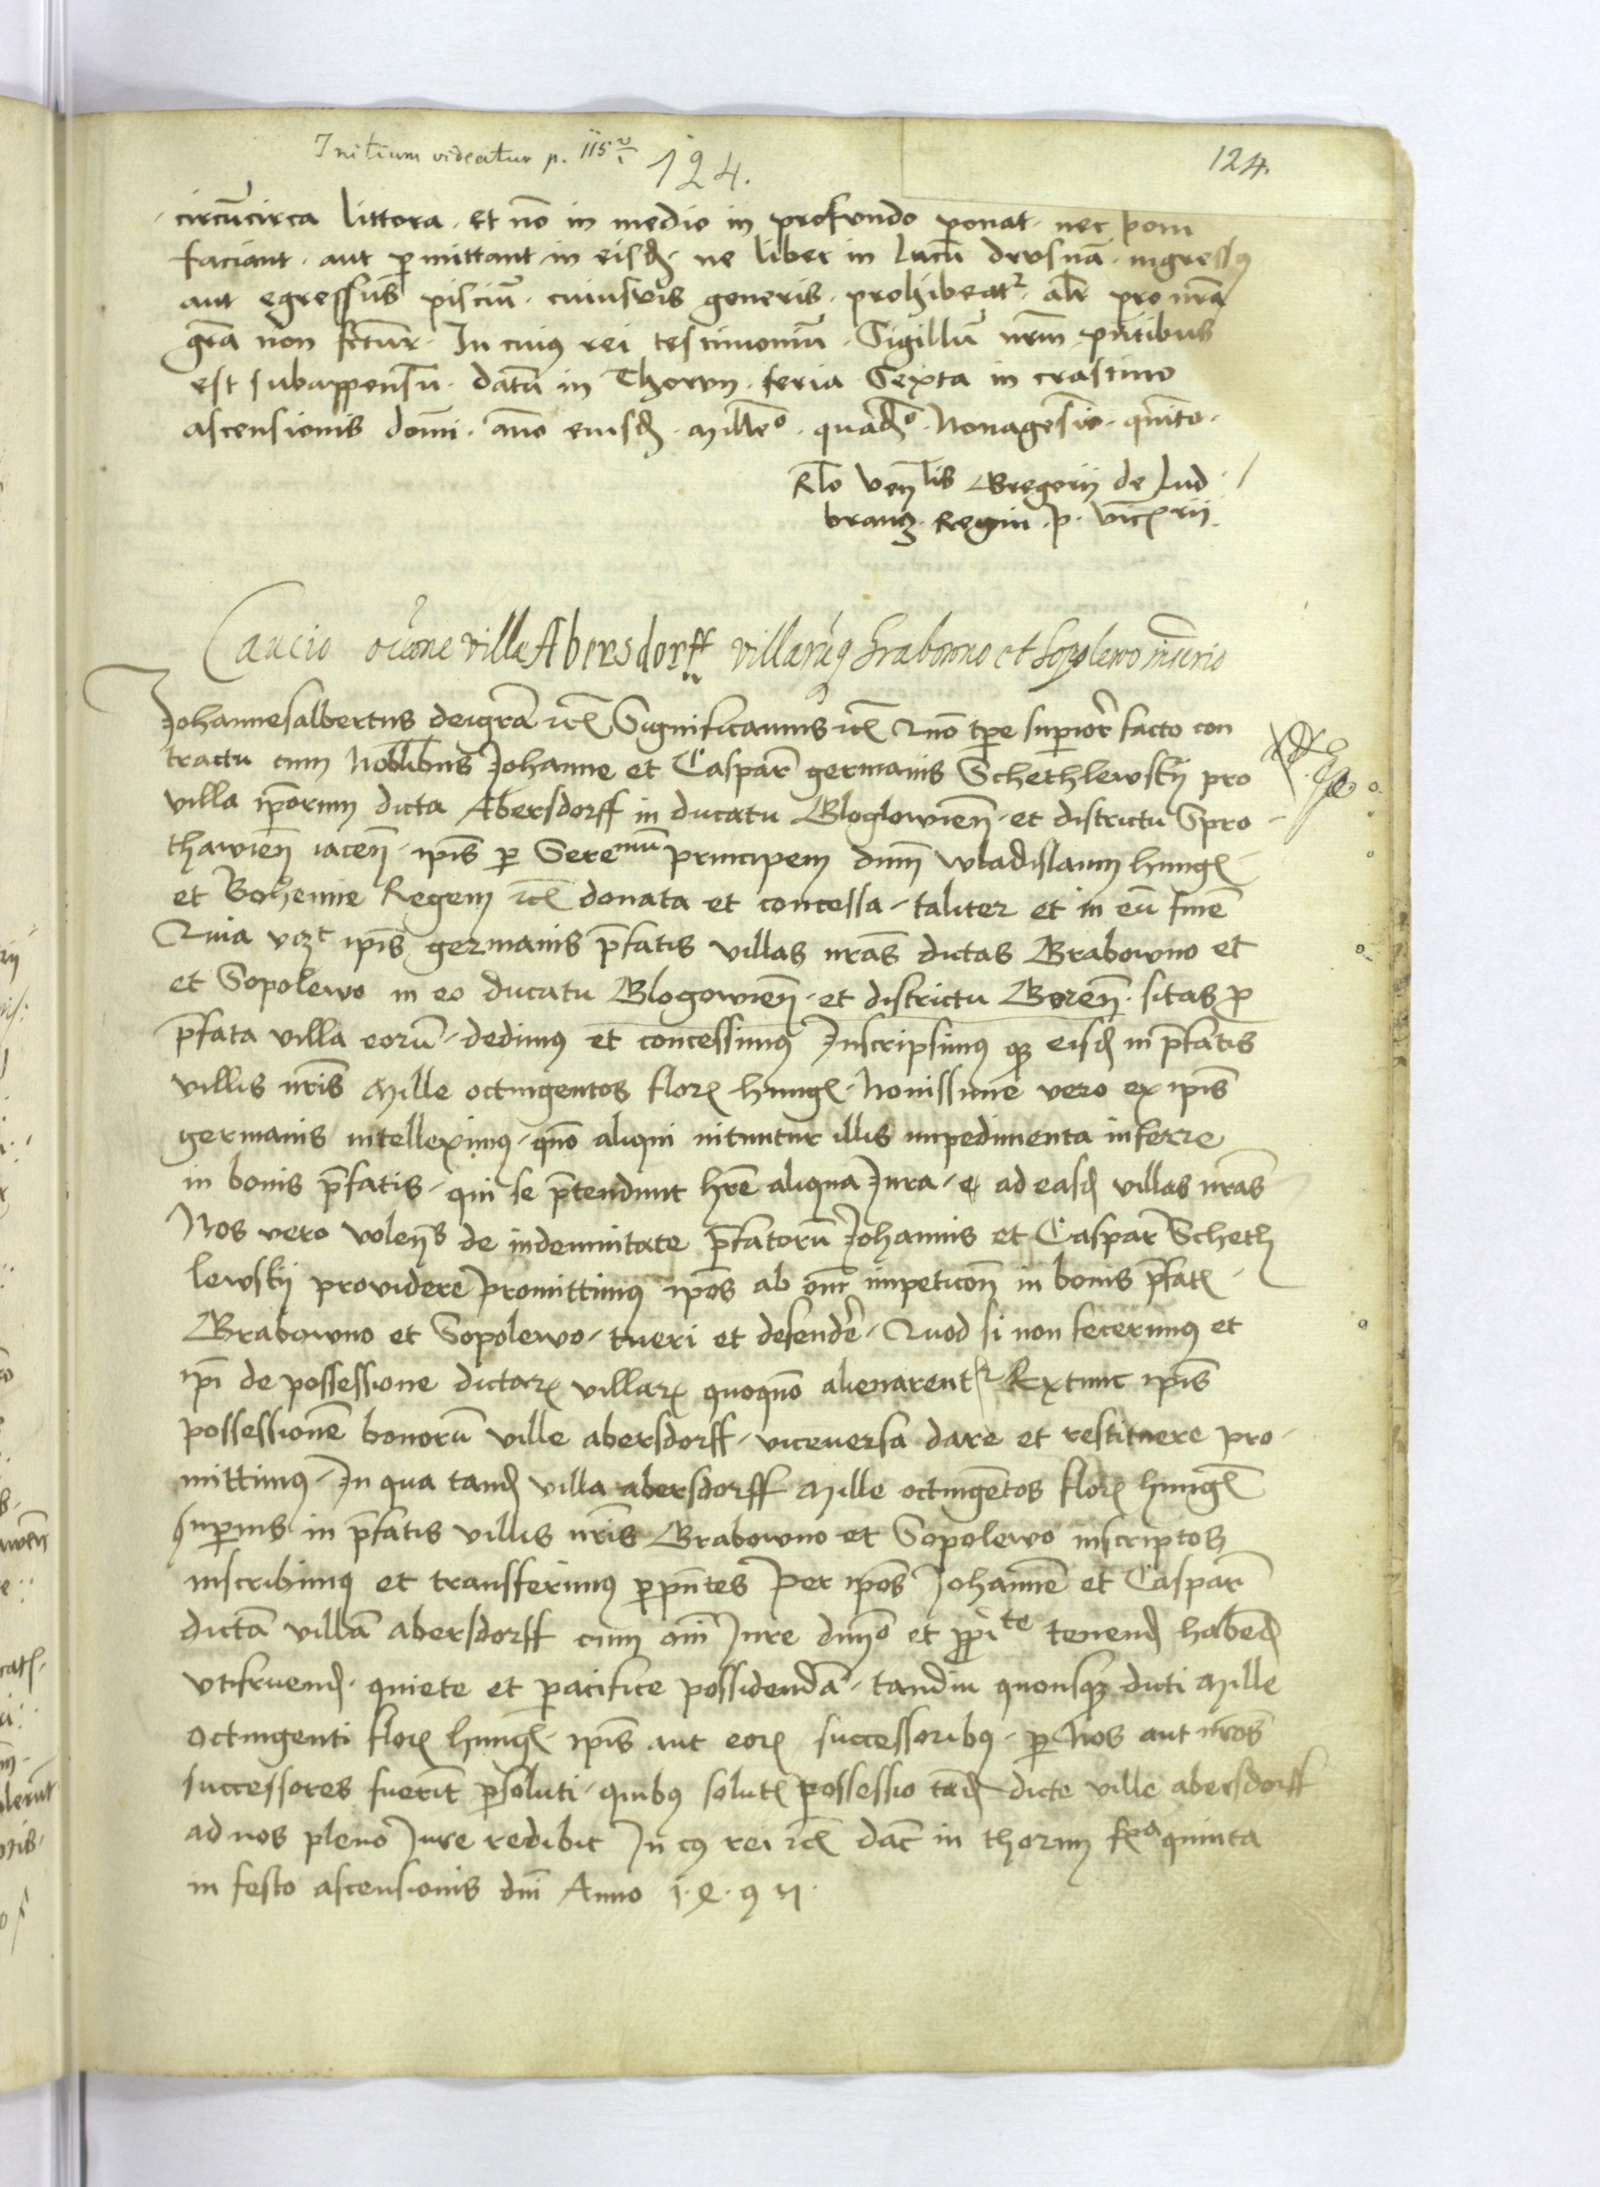 Initium videatur p. 115 v
124.
124.
circūcirca littora et nō in medio in profundo ponāt nec poni
faciant aut p mittant in eisdē ne liber in lacū drusnā ingressus
aut egressus pisciū cuiusvis generis prohibeatr alr pro nrā
grā non fcturr In cuius rei testimoniū Sigillū nrm pntibus
est subappensū datū in Thorun feria Sexta in crastino
ascensionis domī anō eiusdē Millō quadrō Nonagesīo quīto
Rlo venlis Gregorii de Lud
branz Regni p vicērii
Caucio villa Abersdorff villarūq Grabowno et Sopolewo
Johannesalbertus deigrā etc Significamus etc Quō tpe superiōr facto con
tractu cum Nobilibus Johanne et Caspar germanis Schethlewskij pro
villa ipōrum dicta Abersdorff in ducatu Gloglowień et districtu Spro
thawień iaceń ipīs p Serenmū principem dnm wladislaum hungē
et Bohemie Regem etc donata et concessa taliter et in eū finē
Quia vczt ipīs germanis pfatis villas nrās dictas Grabowno et
et Sopolewo in eo ducatu Glogowień et districtu Goreń sitas p
pfata villa eorū dedimus et concessimus Inscripsimus qz eisdē in pfatis
villis nrīs Mille octingentos florē hungē Nouissime vero ex ipīs
germanis intelleximus quō aliqui nituntur illis impedimenta inferre
in bonis pfatis qui se ptendunt hrē aliqua Iura ad easdē villas nrās
Nos vero volens de indemnitate pfatorū Johannis et Caspar Scheth
lewskij providere promittimus ipōs ab ōni impeticōn in bonis pfatē
Grabowno et Sopolewo tueri et defendēr Quod si non fecerimus et
ipi de possessione dictarē villarē quoquō alienarentr Extunc ipīs
possessionē bonorū ville abersdorff viceversa dare et restituere pro
mittimus In qua tandē villa abersdorff Mille octingētos florē hungē
superius in pfatis villis nrīs Grabowno et Sopolewo inscriptos
inscribimus et transferimus p pntes Per ipōs Johannē et Caspar
dictā villā abersdorff cum omī Iure dmō et ppite tenendē habendē
vtifruendē quiete et pacifice possidendā tamdiu quousqz dicti Mille
octingenti florē hungē ipīs aut eorē successoribus p Nos aut nrōs
successores fuerīt psoluti quibus solutē possessio tādē dicte ville abersdorff
ad nos pleno Iure redibit In cuius rei etc dat in thorun fra quinta
in festo ascensionis dnī Anno